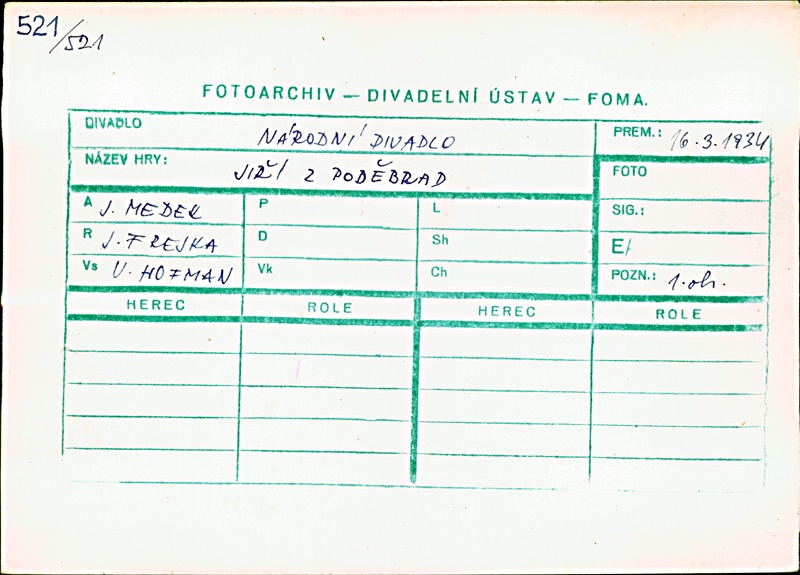 521/521
FOTOARCHIV — DIVADELNÍ ÚSTAV — FOMA.
DIVADLO NÁRODNÍ DIVADLO PREM.: 16.3.1934
NÁZEV HRY: JIŘÍ Z PODĚBRAD FOTO
A J. MEDEK P L SIG.:
R J. FREJKA D Sh E/
Vs V. HOFMAN Vk Ch POZN.: 1.ob.
HEREC ROLE HEREC ROLE